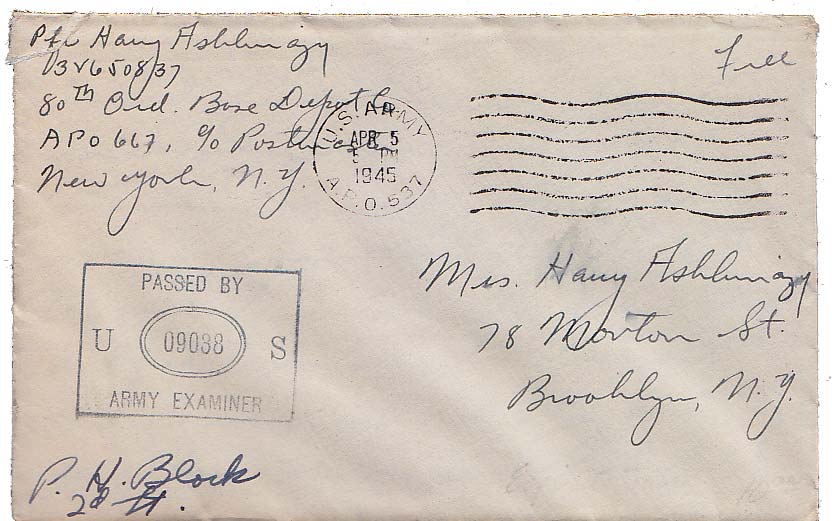 Pfc Harry Ashkinazy
80TH Ord. Base Depot Co.
APO 667, c/o Postmaster
New York, N.Y.
Free
U.S. ARMY
APR 5
5 PM
1945
A.P.O. 537
PASSED BY
U 09038 S
ARMY EXAMINER
Mrs. Harry Ashkinazy
78 Morton St.
Brooklyn, N.Y.
P. H. Block
2d Lt.